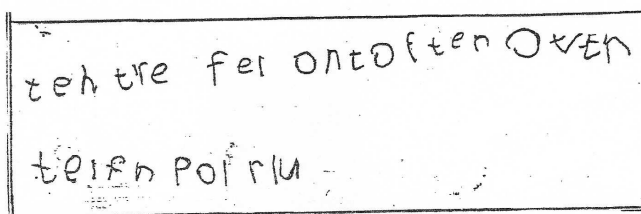 teh tre fel ontoften Oven
teifn poi rlu